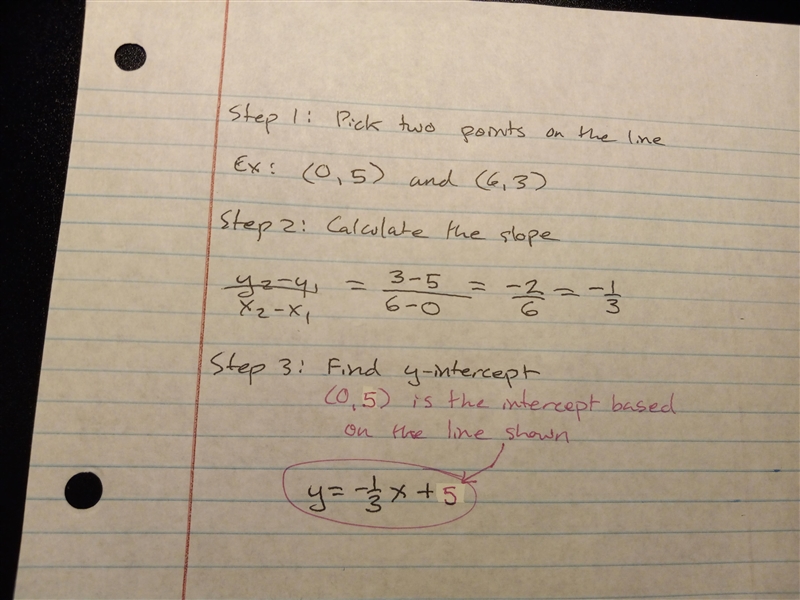 Step 1: Pick two points on the line
Ex: (0,5) and (6,3)
Step 2: Calculate the slope
y₂-y₁/x₂-x₁ = 3-5/6-0 = -2/6 = -1/3
Step 3: Find y-intercept
(0,5) is the intercept based
on the line shown
y = -1/3 x + 5